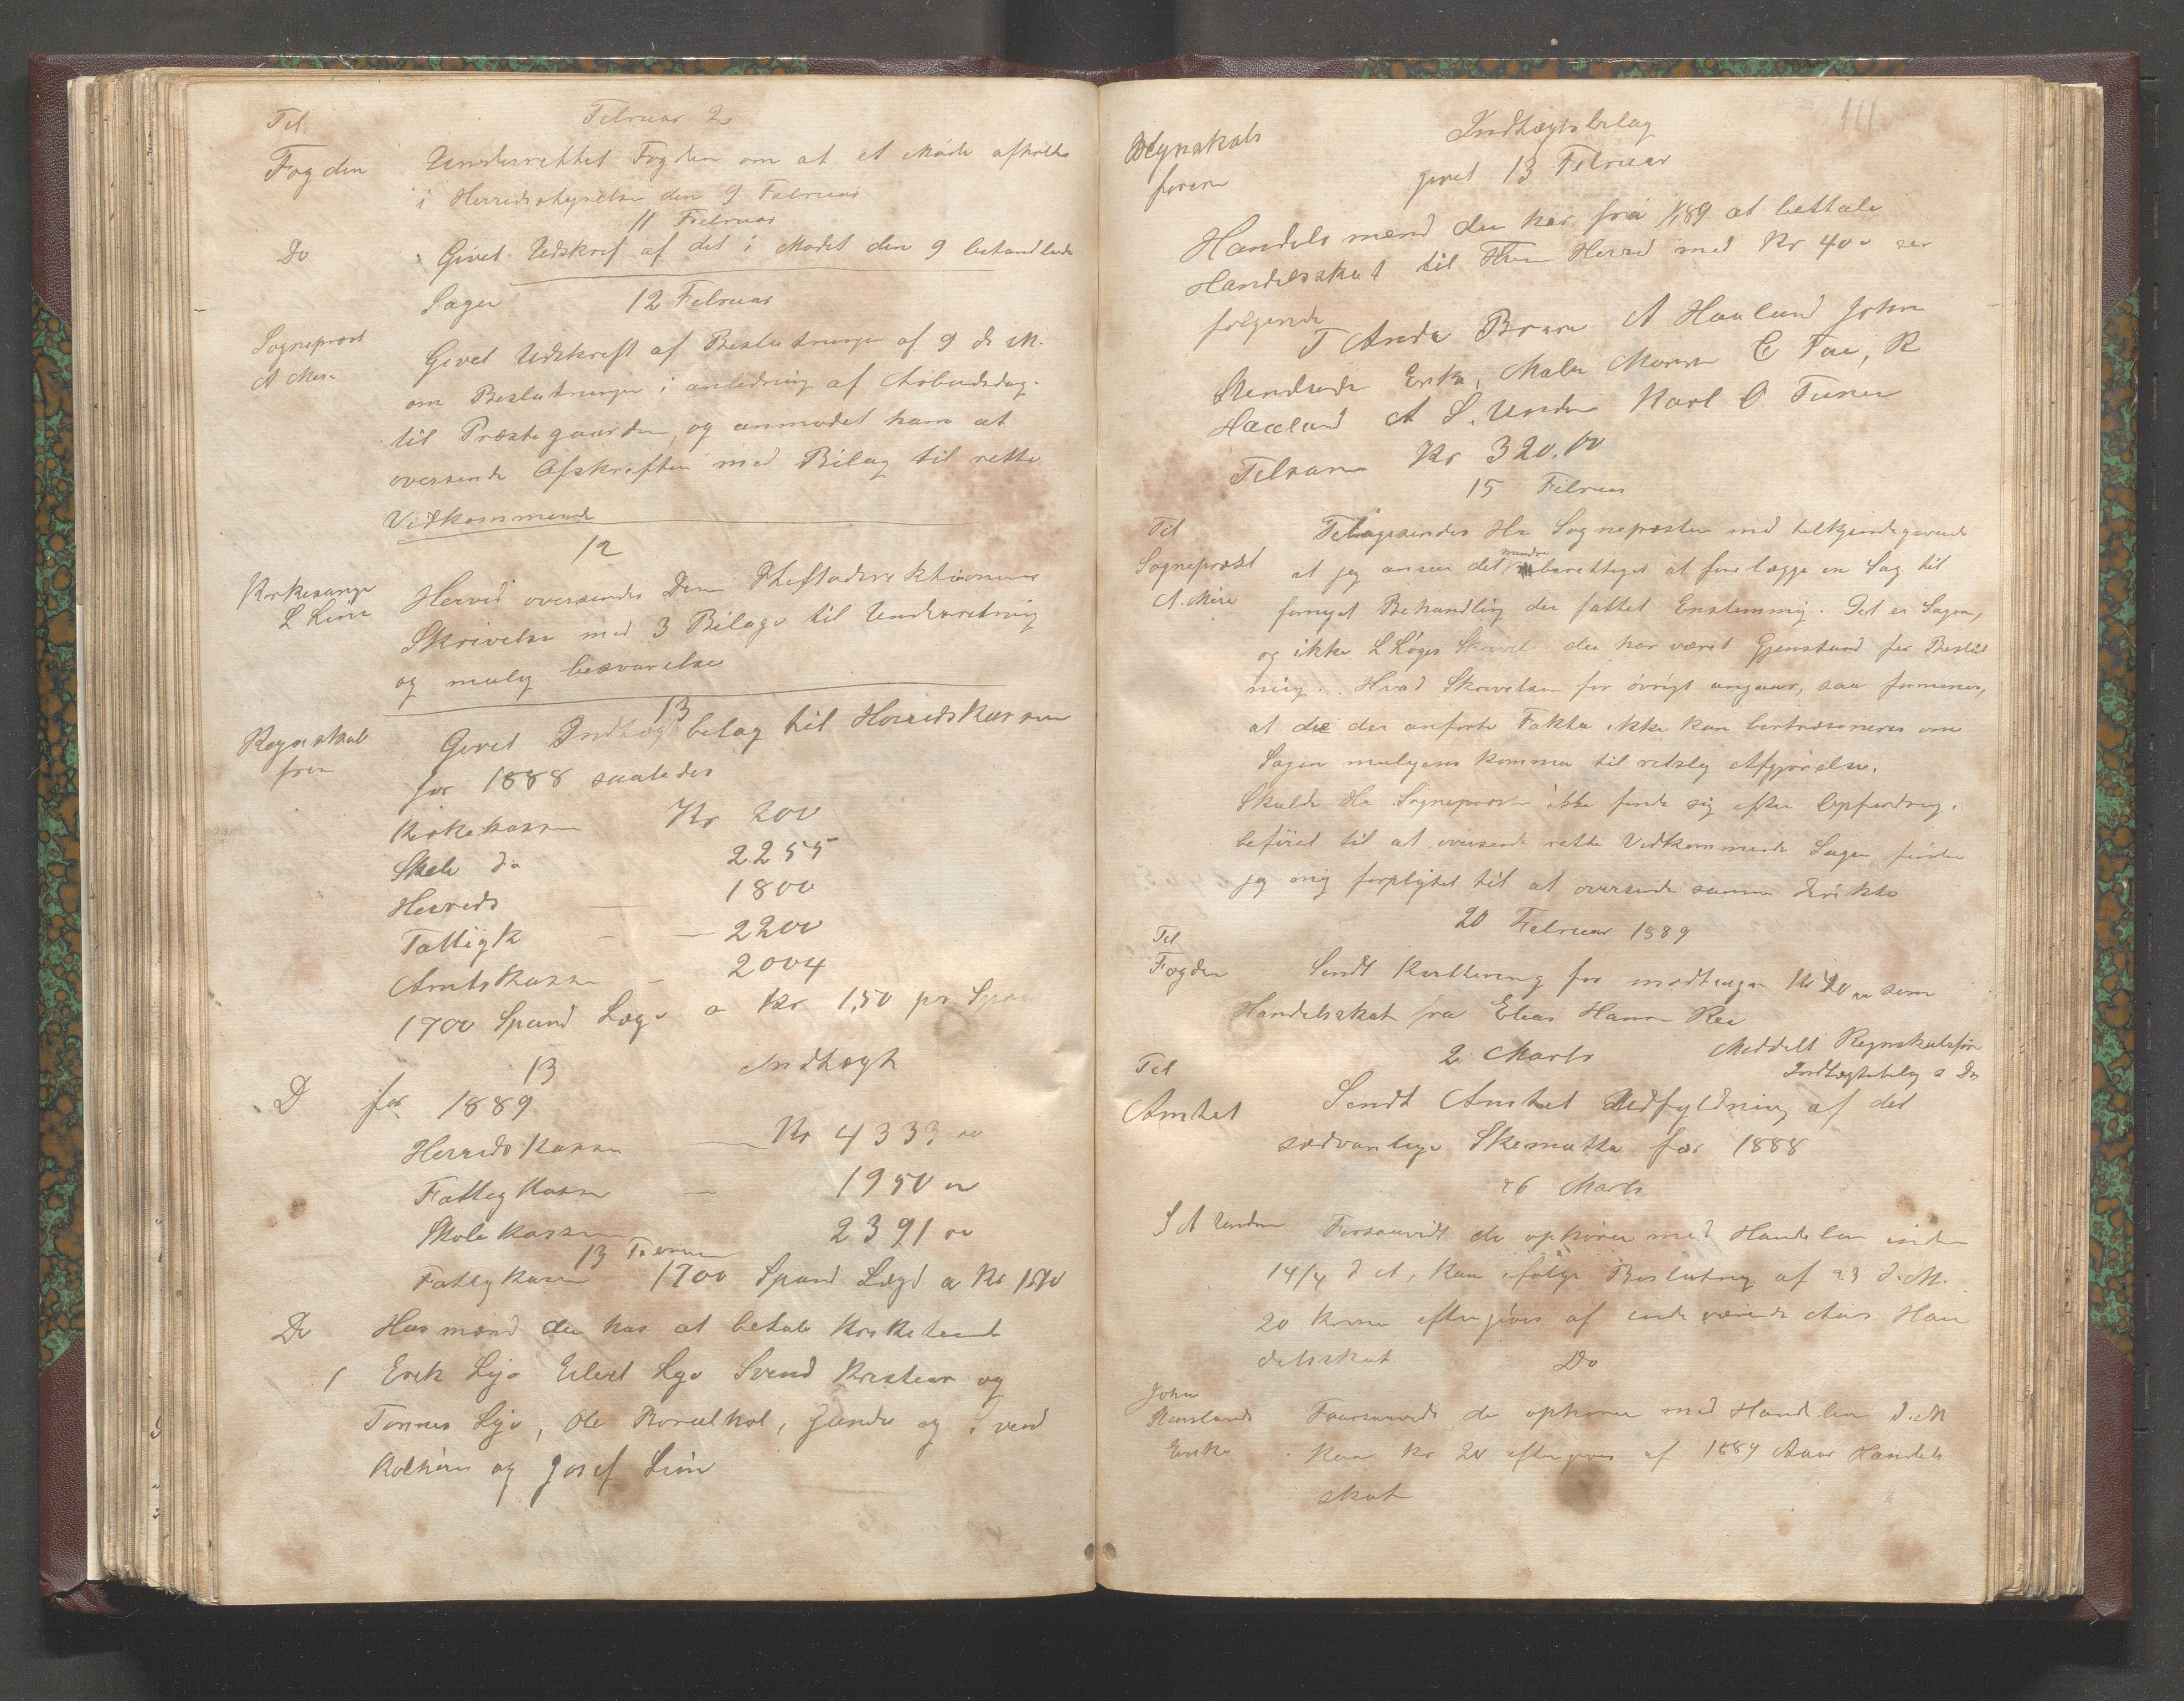 Februar 2
Til
Fogden
Underrettet Fogden om at et Møde afholdes
i Herredsstyrelsen den 9 Februar
11 Februar
Do
Givet Udskrif af det i Mødet den 9 behandlede
Sager
12 Februar
Sogneprest
A
Givet Udskrift af Beslutninger af 9 d. M.
om Beslutninger i anledning af Arbeidsdag.
til Præstegaarden, og anmodet ham at
oversende Afskriften med Bilag til rette
Vidkommende
12
Kirkesanger
L Lima
Herved oversendes Den Stiftsdirektionens
Skrivelse med 3 Bilage til Underretning
og mulig besvarelse
13
Regnskabs
fører
Givet Indtægtsbelag til Herredskassen
for 1888 saaledes
Kirkekassen Kr 200
Skole do 2255
Herreds — 1800
Fattigk — — 2200
Amtskassen — 2004
1700 Spand Lægd a Kr 1,50 pr Span
13 Indtægt
D for 1889
Herredskassen — Kr 4333 00
Fattigkassen — 1950 00
Skolekassen 2391 00
13 Februar
Fattigkassen 1700 Spand Lægd a Kr 1.50
Do
Husmænd der har at betale Kirketiende
1 Erik Lyse Eilert Lyse Svend Kristian og
Tønnes Lyse, Ole, og Svend
og Josef Lima
111
Indtægtsbelag
Regnskabs
føreren
givet 13 Februar
Handelsmænd der har fra 1/1 89 at bettale
Handelsskat til Herred med Kr 40 00 er
følgende
T Anda Braae A Haaland John
Erska, Malm C Foss, R
Haaland A S. Undem Karl O Tunem
Tilsam Kr 320.00
15 Februar
Til
Sogneprest
A.
Tilbagesendes Hr Sognepresten med tilkjendegivende
at jeg anser det mindre berettiget at forelægge en Sag til
fornyet Behandling der fattet Enstemmig. Det er Sagen,
og ikke L Skrivel der har været Gjenstand for Beslut
ning. Hvad Skrivelsen for øvrigt angaar, saa formenes,
at de der anførte Fakta ikke kan bortræsoneres om
Sagen muligens kommer til retslig Afgjørelse.
Skulde Hr Sognepresten ikke finde sig efter Opfordring.
beføiet til at oversende rette Vedkommende Sagen finder
jeg mig forpligtet til at oversende samme direkte
20 Februar 1889
Til
Fogden
Sendt Kvittering for modtagne Kr 20 00 som
Handelsskat fra Elias Hansen Ree
2 Marts
Meddelt Regnskabsfør
Indtægtsbelag s Do
Til
Amtet
Sendt Amtet Udfyldning af det
sædvanlige Skematta for 1888
26 Marts
S A Undem
Forsaavidt de ophører med Handelen inden
14/4 d A, kan ifølge Beslutning af 23 d. M.
20 Kroner eftergives af indeværende Aars Han
delsskat
Do
John
Erska
Foorsaavidt de ophører med Handelen d. M
kan Kr 20 eftergives af 1889 Aaar Handels
skat